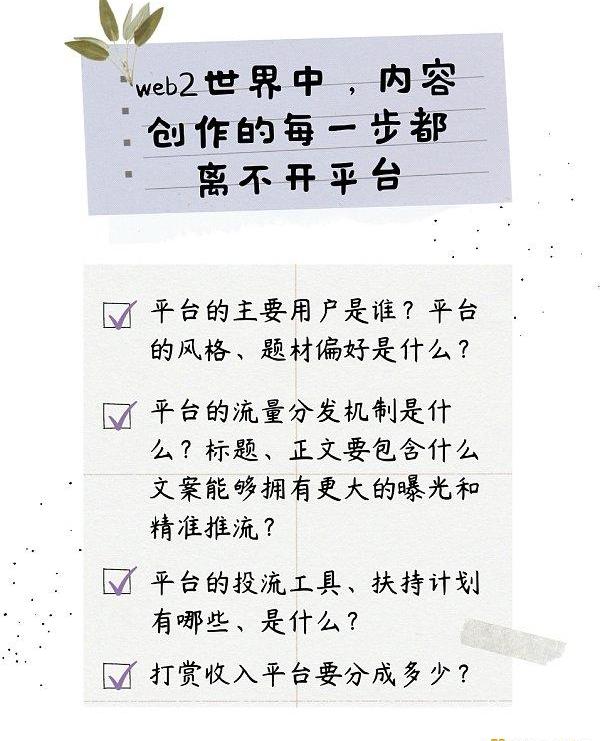 web2世界中，内容
创作的每一步都
离不开平台
平台的主要用户是谁？平台
的风格、题材偏好是什么？
平台的流量分发机制是什
么？标题、正文要包含什么
文案能够拥有更大的曝光和
精准推流？
平台的投流工具、扶持计划
有哪些、是什么？
打赏收入平台要分成多少？